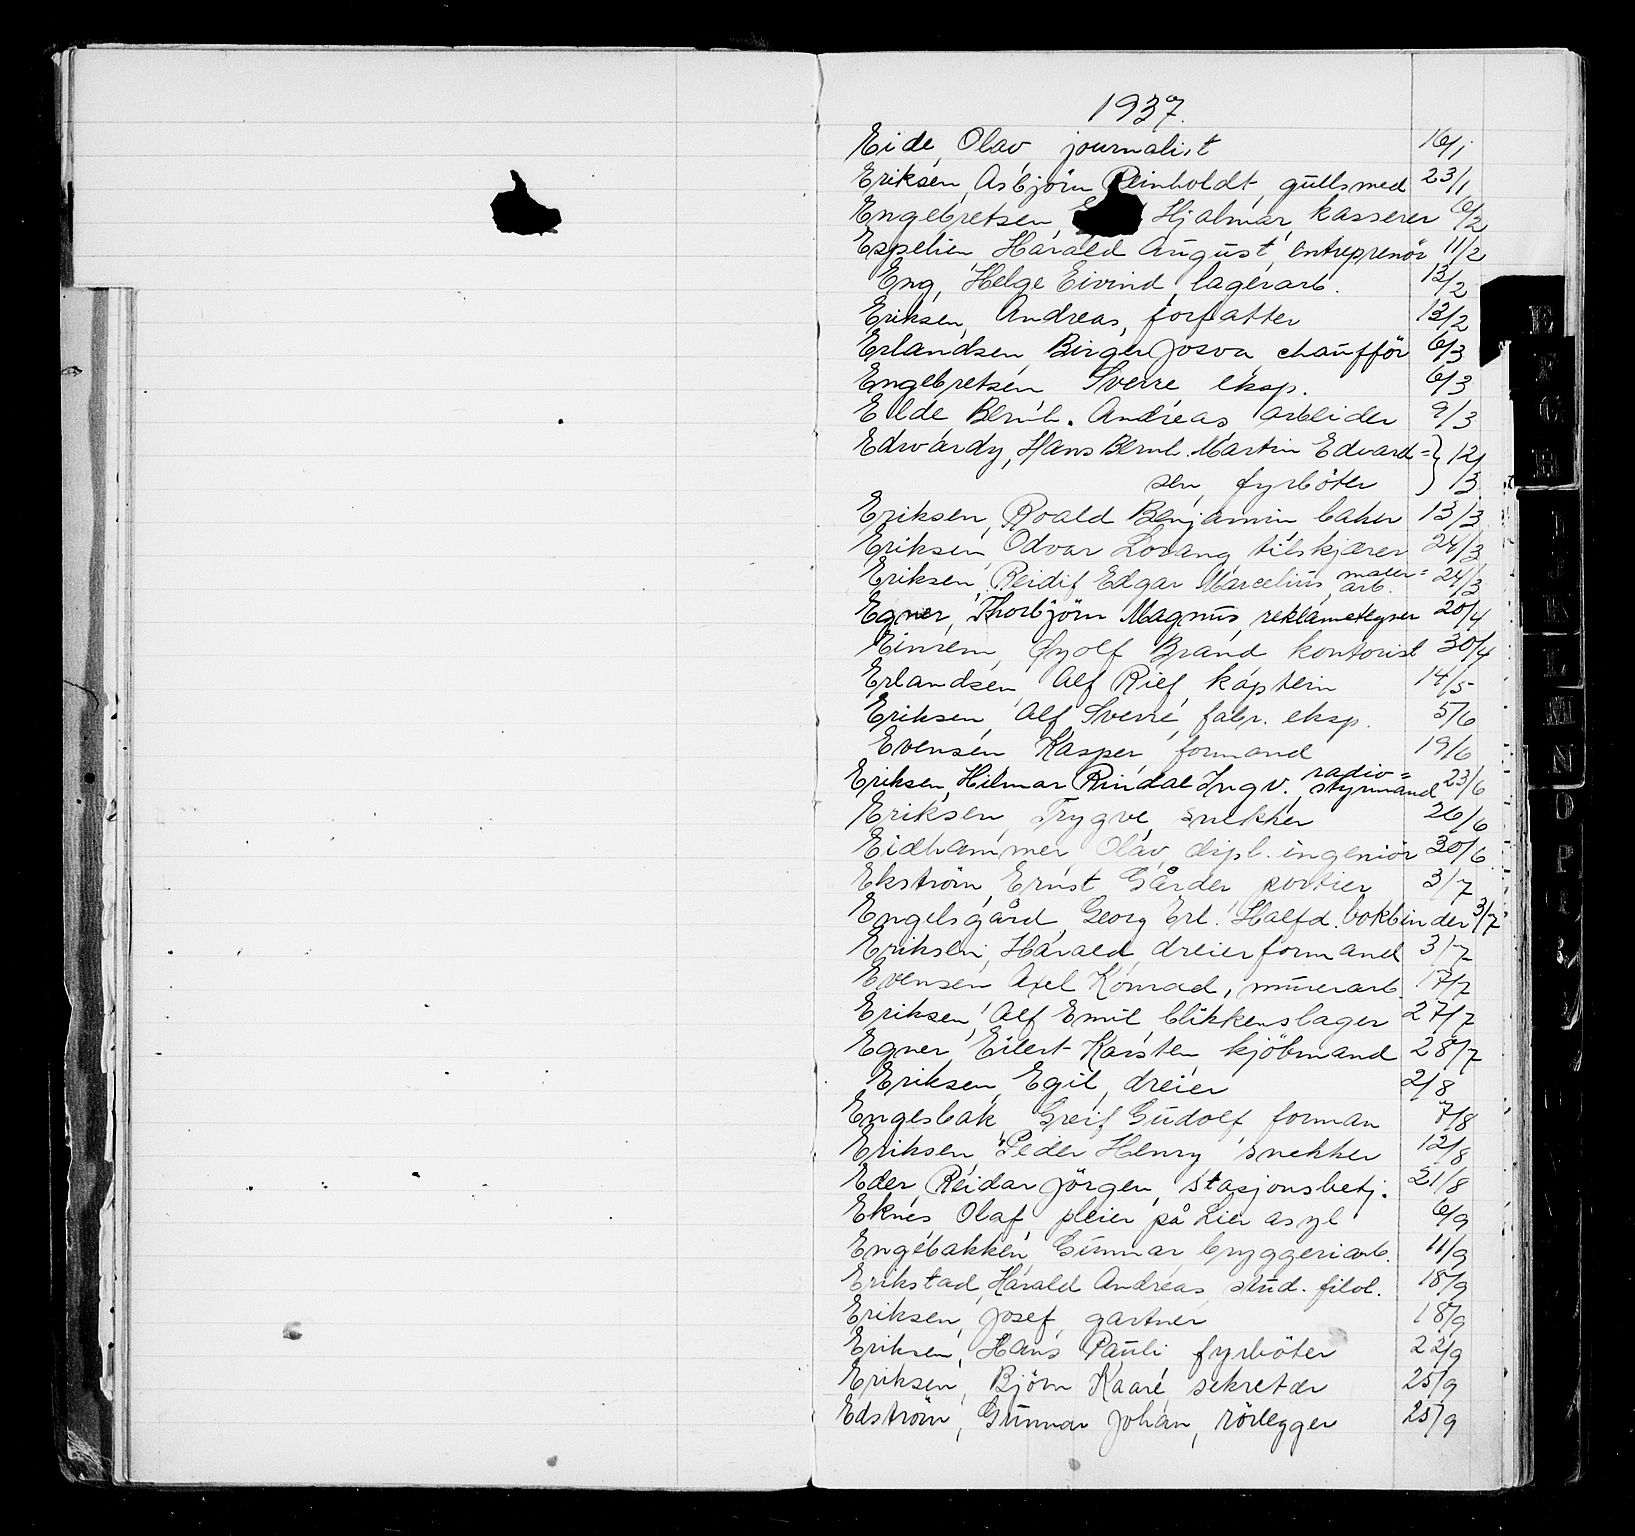 1937.
Eide, Olav journalist 16/1
Eriksen, Asbjörn Reinholdt, gullsmed 23/1
Engebretsen, Hjalmar, kasserer 6/2
Espelien, Harald August, entreprenör 11/2
Eng, Helge Eivind, lagerarb. 13/2
Eriksen, Andreas, forfatter 13/2
Erlandsen, Birger Josva chaufför 6/3
Engebretsen Sverre eksp. 6/3
Elde Bernh. Andreas arbeider 9/3
Edwardy, Hans Bernh. Martin Edvard= } 12/
sen, fyrböter } 3
Eriksen, Roald Benjamin baker 13/3
Eriksen, Odvar Lorang, tilskjærer 24/3
Eriksen, Reidif Edgar Marcelius, maler= arb. 24/3
Egner, Thorbjörn Magnus, reklametegner 20/4
Einrem, Gyolf Brand kontorist 30/4
Erlandsen, Alf Rief, kaptein 14/5
Eriksen, Alf Sverre, fabr. eksp. 5/6
Evensen Kasper, formand 19/6
Eriksen, Hilmar Rindal Ingv., radio= styrmand 23/6
Eriksen, Trygve, snekker 26/6
Eidhammer, Olav, dipl. ingeniör 30/6
Ekström, Ernst Gårder portier 3/7
Engelsgård, Georg Erl. Halfd. bokbinder 3/7
Eriksen, Harald, dreierformand 3/7
Evensen Axel Konrad, murerarb. 17/7
Eriksen, Alf Emil, blikkenslager 27/7
Egner, Eilert Karsten kjöbmand 28/7
Eriksen, Egil, dreier 2/8
Engesbak, Greif Gudolf forman 7/8
Eriksen, Peder Henry snekker 12/8
Eder, Reidar Jörgen, stasjonsbetj. 21/8
Eknes Olaf, pleier på Lier asyl 6/9
Engebakken, Gunnar, bryggeriarb. 11/9
Erikstad, Harald Andreas, stud. filol. 18/9
Eriksen, Josef, gartner 18/9
Eriksen, Hans Pauli fyrböter 22/9
Eriksen, Björn Kaare sekretær 25/9
Edström, Gunnar Johan, rörlegger 25/9
E
F
G
H
I
J
K
L
M
N
O
P